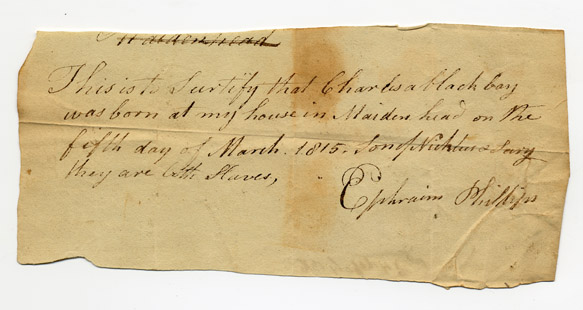 Maidenhead
This is to Surtify that Charles a black boy
was born at my house in Maiden head on the
fifth day of March. 1815. Son of
they are both Slaves,
Ephraim Phillips